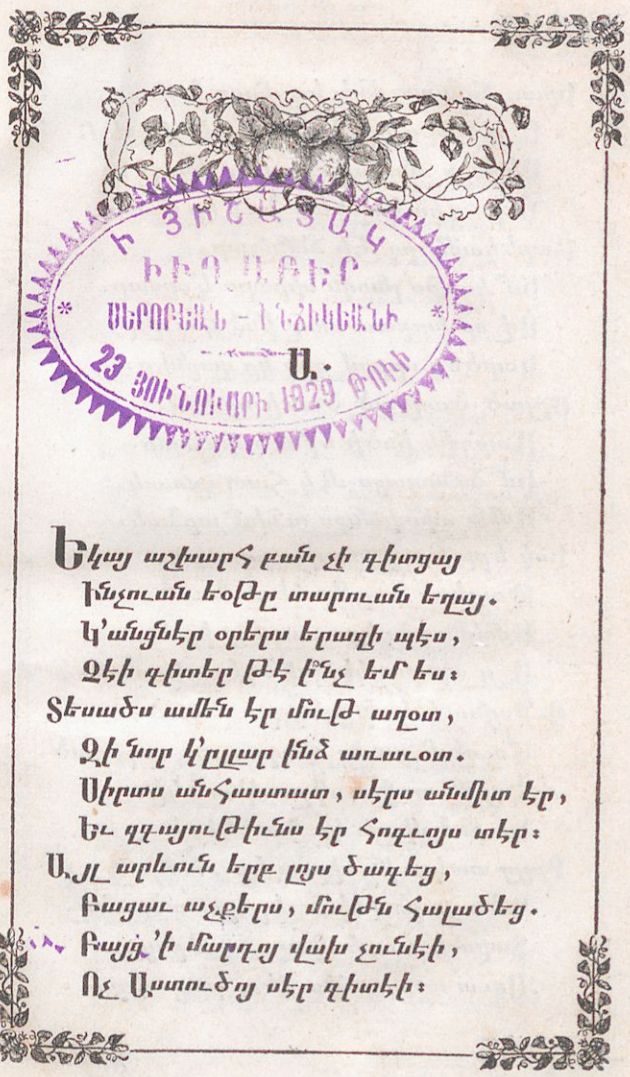 Ի ՅԻՇԱՏԱԿ
ՍԵՐՈԲԵԱՆ -
23 ՅՈՒՆՈՒԱՐԻ 1929 ԹՈՒԻ
Ա.
Եկայ աշխարհ բան չի գիտցայ
Ինչուան եօթը տարուան եղայ.
Կ՚անցնէր օրերս երազի պէս,
Չէի գիտեր թէ ի՞նչ եմ ես։
Տեսածս ամեն էր մութ աղօտ,
Զի նոր կ՚ըլլար ինձ առաւօտ.
Սիրտս անհաստատ, սէրս անմիտ էր,
Եւ զգայութիւնս էր հոգւոյս տէր։
Այլ արևուն երբ լոյս ծագեց,
Բացաւ աչքերս, մութն հալածեց.
Բայց ՚ի մարդոյ վախ չունէի,
Ոչ Աստուծոյ սէր գիտէի։